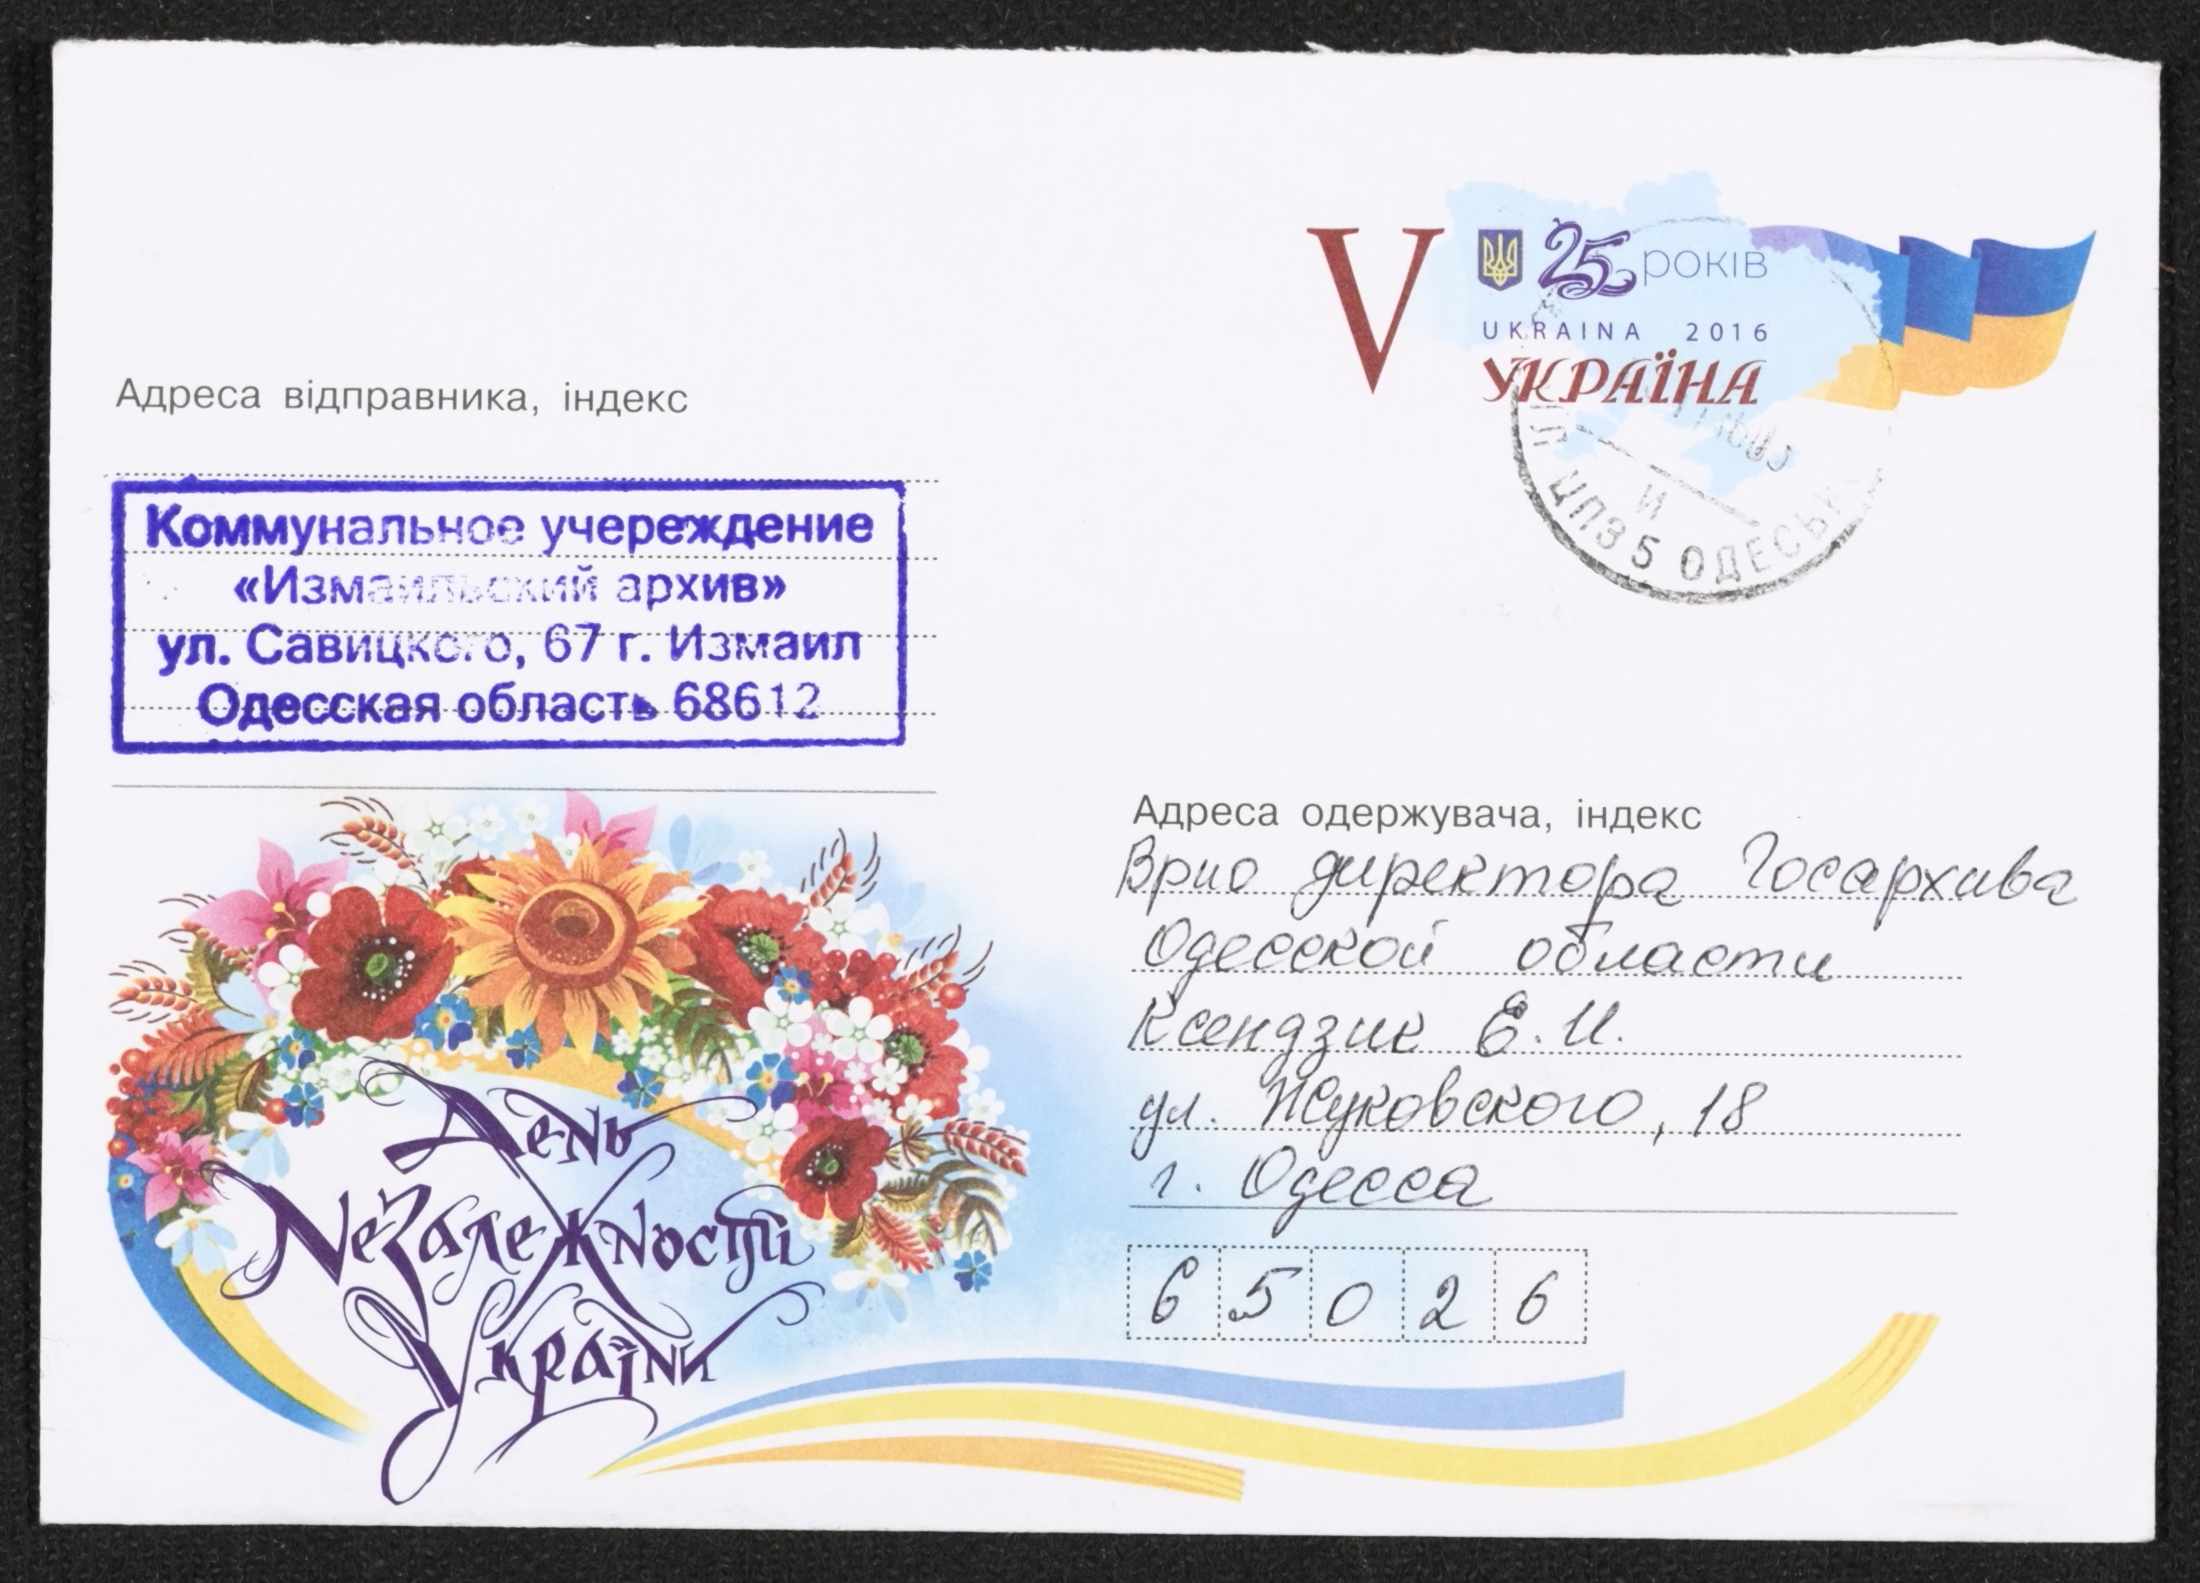 V
25 років
UKRAINA 2016
УКРАЇНА
ЦПЗ 5 ОДЕСЬК
И
Адреса відправника, індекс
Коммунальное учереждение
«Измаильский архив»
ул. Савицкого, 67 г. Измаил
Одесская область 68612
Адреса одержувача, індекс
Врио директора Госархива
Одесской области
Ксендзик Е.И.
ул. Жуковского, 18
г. Одесса
65026
День
Незалежності
України